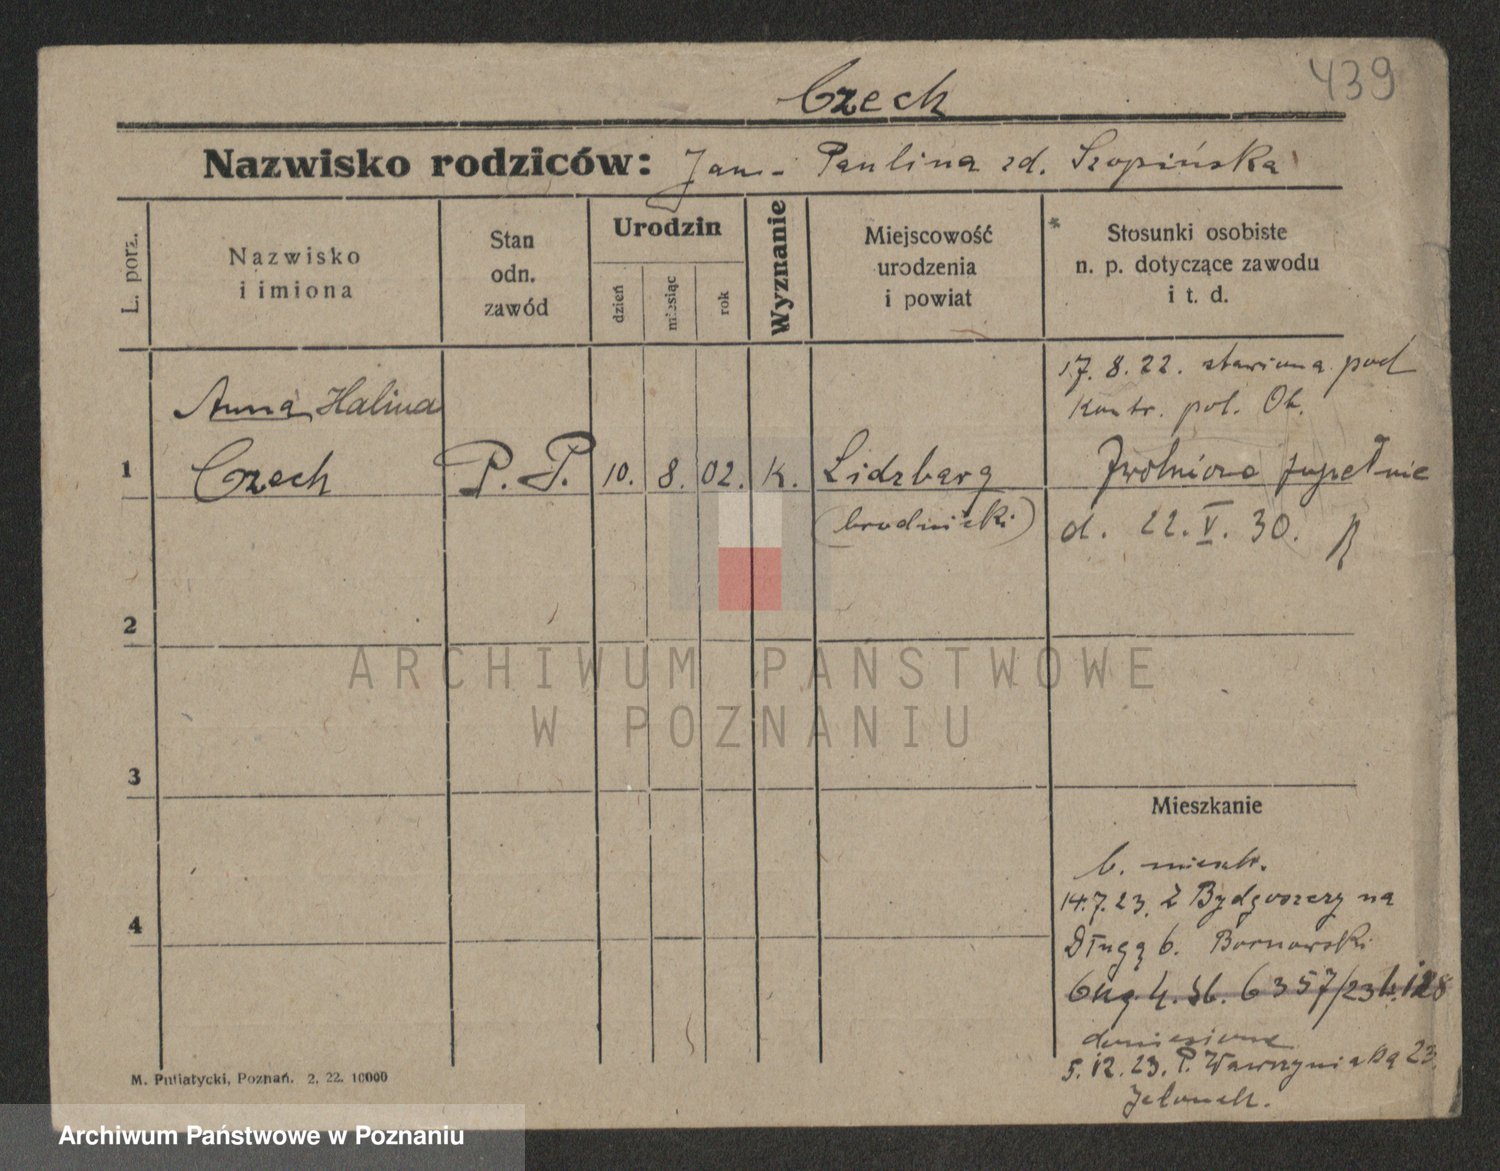 439
Czech
Nazwisko rodziców: Jan - Paulina zd. Szopińska
L. porz.
Nazwisko
i imiona
Stan
odn.
zawód
Urodzin
dzień
miesiąc
rok
Wyznanie
Miejscowość
urodzenia
i powiat
* Stosunki osobiste
n. p. dotyczące zawodu
i t. d.
1
Anna Halina
Czech
P. P.
10. 8. 02. K.
Lidzbarg
(brodnicki)
17. 8. 22. stawiona pod
Kontr. pol. Ob.
Zwolniona zupełnie
d. 22. V. 30.
2
3
4
Mieszkanie
b. mieszk.
14.7.23. Z Bydgoszczy na
Długą 6. Bornowski
6357/23
doniesione
5. 12. 23. P. Wawrzyniaka 23.
Jelonek.
M. Putiatycki, Poznań. 2. 22. 10000
ARCHIWUM PAŃSTWOWE
W POZNANIU
Archiwum Państwowe w Poznaniu